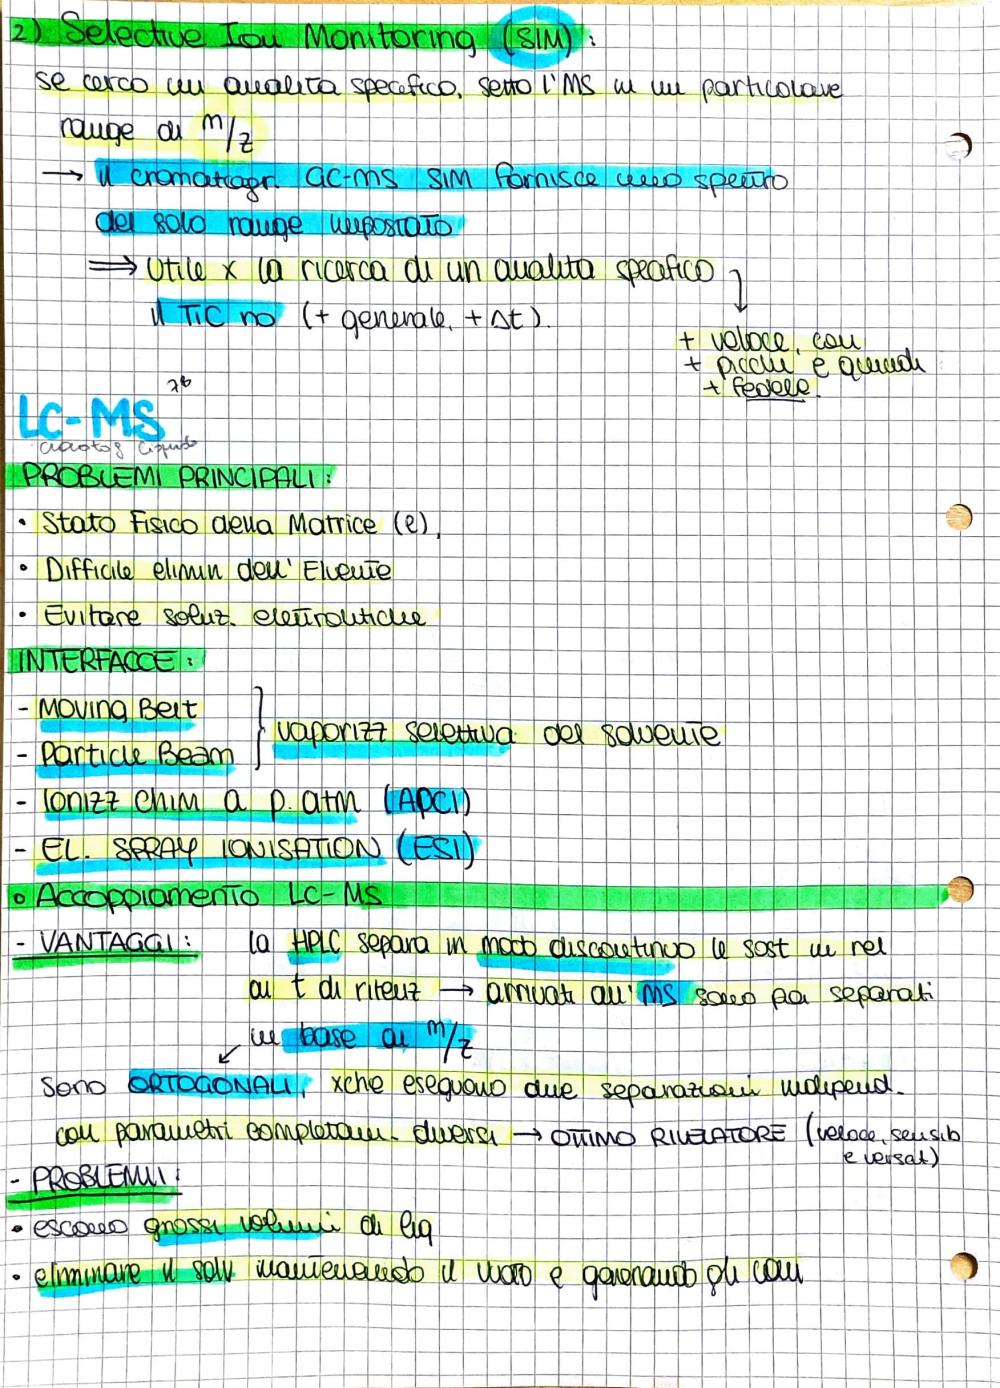 2) Selective Ion Monitoring (SIM):
se cerco un analita specifico, setto l'MS in un particolare
range di m/z
→ il cromatogr. GC-MS SIM fornisce uno spettro
del solo range impostato
⇒ Utile x la ricerca di un analita specifico
il TIC no (+ generale, + Δt).
+ veloce, con
+ picchi e quindi
+ fedele.
LC-MS
cromatog liquido
PROBLEMI PRINCIPALI:
• Stato Fisico della Matrice (l),
• Difficile elimin dell'Eluente
• Evitare soluz. elettrolitiche
INTERFACCE:
- Moving Belt
- Particle Beam } vaporizz selettiva del solvente
- Ionizz chim a p. atm (APCI)
- EL. SPRAY IONISATION (ESI)
• Accoppiamento LC-MS
- VANTAGGI: la HPLC separa in modo discontinuo le sost in rel
al t di ritenz → arrivati all'MS sono poi separati
in base al m/z
Sono ORTOGONALI, xche eseguono due separazioni independ.
con parametri completam. diversi → OTTIMO RIVELATORE (veloce, sensib
e versat)
- PROBLEMI:
• escono grossi volumi di liq
• eliminare il solv mantenendo il vuoto e generando gli ioni